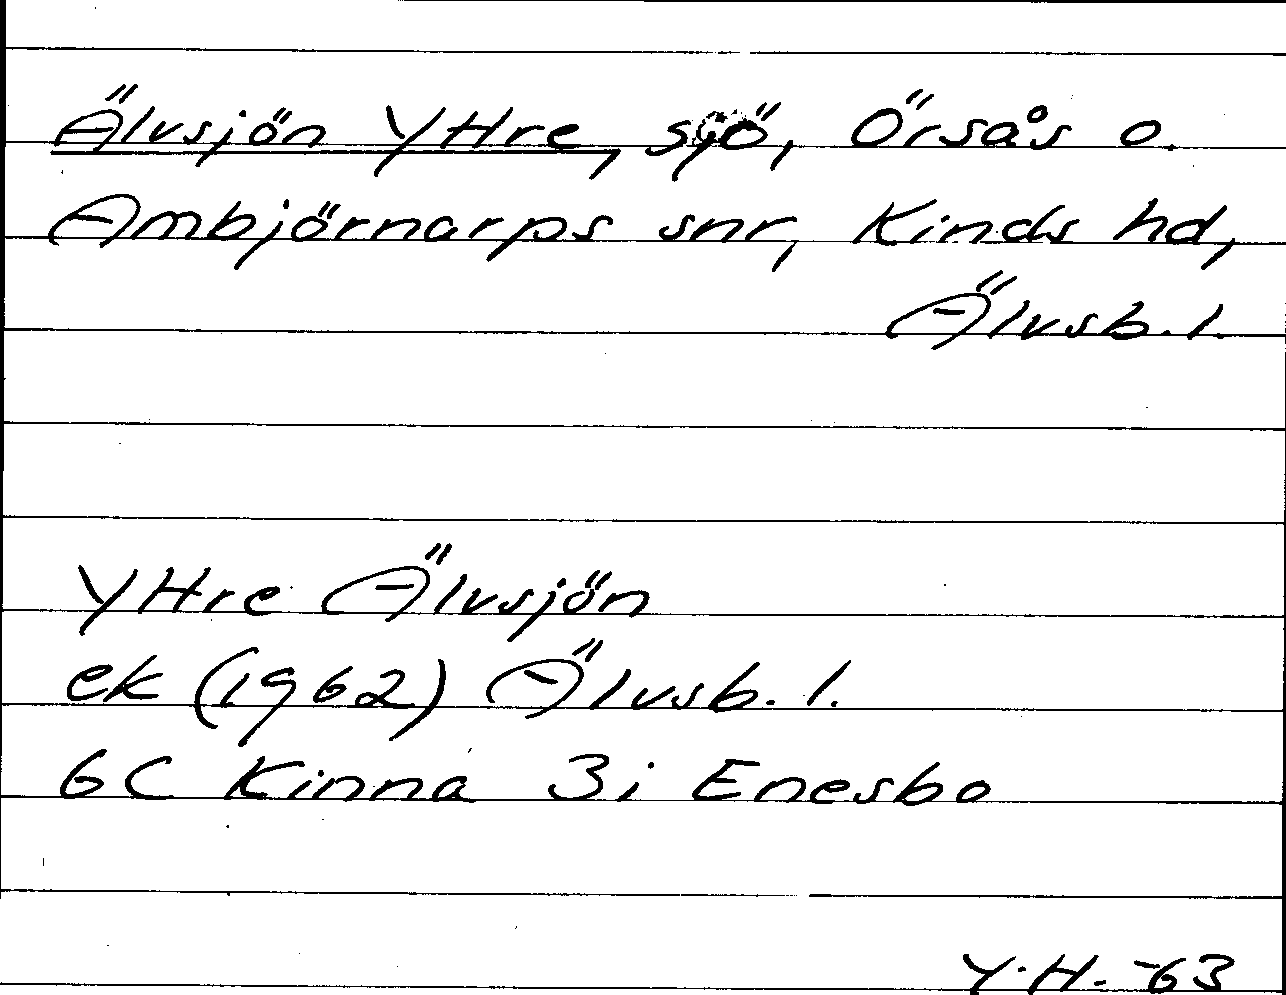 Älvsjön Yttre, sjö, Örsås o.
Ambjörnarps snr, Kinds hd,
Älvsb. l.
Yttre Älvsjön
ek (1962) Älvsb. l.
6C Kinna 3i Enesbo
Y.H. -63